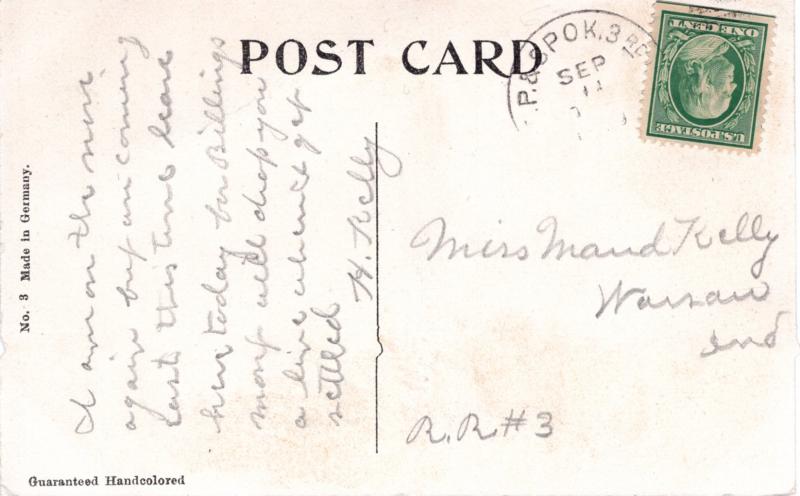 POST CARD
P. & SPOK. 3
SEP
ONE CENT
U.S. POSTAGE
I am on the move
again but am coming
east this time leave
here today for Billings
mont will drop you
a line when I get
settled
H. Kelly
Miss Maud Kelly
Warsaw
Ind
R.R. #3
No. 3 Made in Germany.
Guaranteed Handcolored